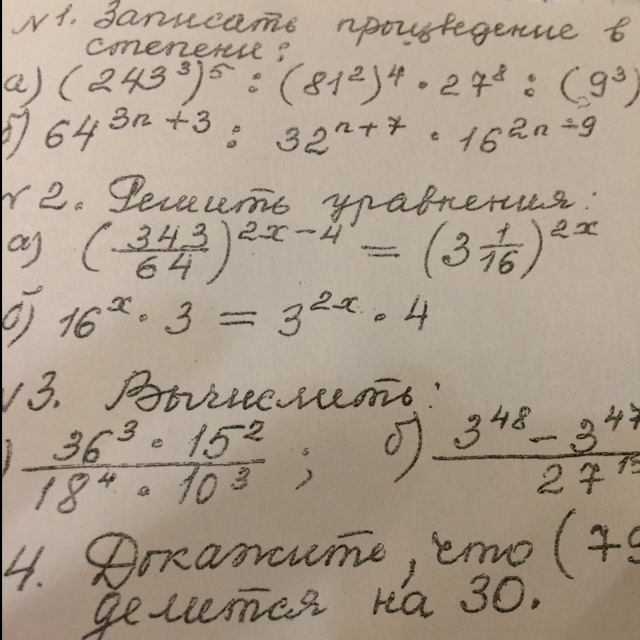 №1. Записать произведение в
степени:
а) (243³)⁵ : (81²)⁴ · 27⁸ : (9³)
б) 64³ⁿ⁺³ : 32ⁿ⁺⁷ · 16²ⁿ⁻⁹
№2. Решить уравнения:
а) (343/64)^(2x-4) = (3 1/16)^(2x)
б) 16ˣ · 3 = 3²ˣ · 4
№3. Вычислить:
) 36³ · 15² / 18⁴ · 10³ ; б) 3⁴⁸ - 3⁴⁷ / 27¹⁵
4. Докажите, что (79
делится на 30.